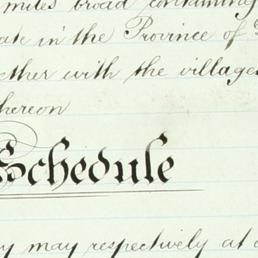 miles broad containing
ate in the Province of
ether with the villages
thereon
Schedule
y may respectively at a